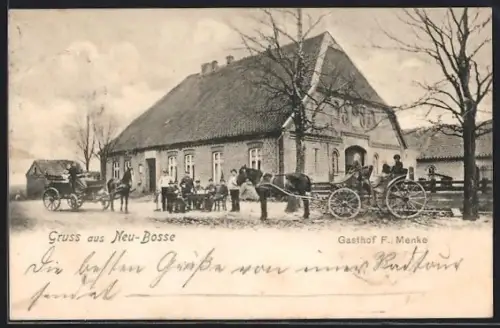 Gruss aus Neu-Bosse
Gasthof F. Menke
Die besten Grüße von einer Radtour
sendet